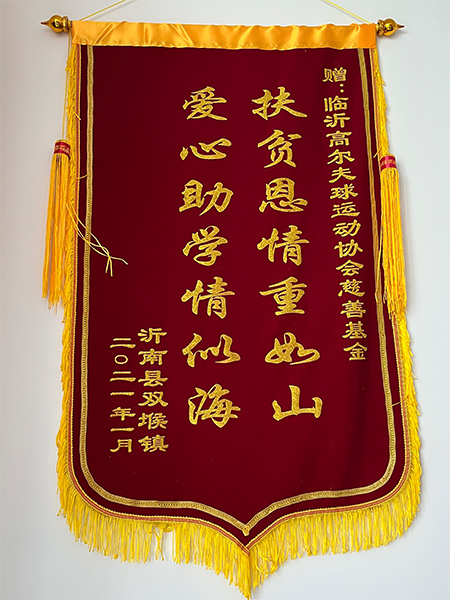 赠：临沂高尔夫球运动协会慈善基金
扶贫恩情重如山
爱心助学情似海
沂南县双堠镇
二〇二一年一月